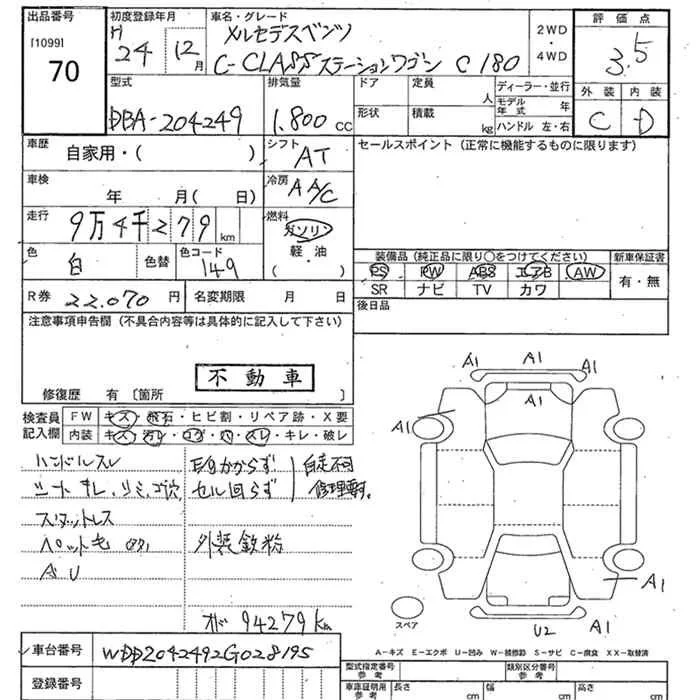 出品番号
[1099]
70
初度登録年月
H 24 12月
車名・グレード
メルセデスベンツ
C-CLASSステーションワゴン C180
2WD
・
4WD
評価点
3.5
外装 内装
C D
型式
DBA-204249
排気量
1.800 cc
ドア
定員
人
形状
積載
kg
ディーラー・並行
モデル年式 年
ハンドル 左・右
車歴
自家用・( )
シフト
AT
セールスポイント (正常に機能するものに限ります)
車検
年 月( 日)
冷房
A A/C
走行
9万4千279 km
燃料
ガソリン
軽・油
( )
色
白
色替
色コード
149
装備品 (純正品に限り○をつけてください)
新車保証書
PS PW ABS エアB AW
SR ナビ TV カワ
有・無
R券 22.070 円
名変期限 月 日
後日品
注意事項申告欄 (不具合内容等は具体的に記入して下さい)
不動車
修復歴 有 〔箇所 〕
検査員記入欄
FW キズ・飛石・ヒビ割・リペア跡・X要
内装 キズ・汚レ・コゲ・穴・スレ・キレ・破レ
ハンドルスレ
スタットレス
AU
E/gかからず
セル回らず
自走不可
外装鉄粉
94279km
A1 A1 A1
A1
A1
A1
U2 A1
スペア
A-キズ E-エクボ U-凹み W-補修跡 S-サビ C-腐食 XX-取替済
車台番号 WDD2042492G028195
登録番号
型式指定番号
参考
類別区分番号
参考
車庫証明用
参考
長さ cm
幅 cm
高さ cm